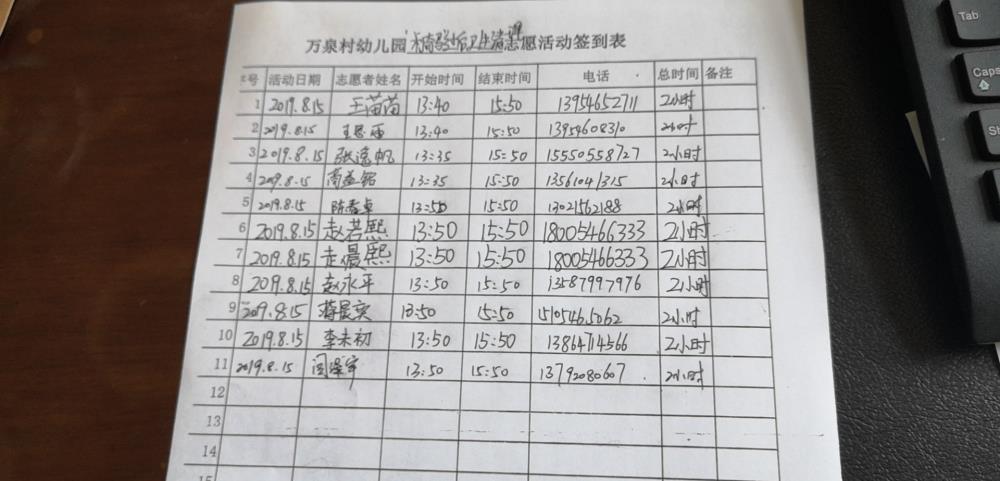 万泉村幼儿园 卫生清理志愿活动签到表
号 活动日期 志愿者姓名 开始时间 结束时间 电话 总时间 备注
1 2019.8.15 王苗苗 13:40 15:50 13954652711 2小时
2 2019.8.15 13:40 15:50 13954608310 2小时
3 2019.8.15 张逸帆 13:35 15:50 15550558727 2小时
4 2019.8.15 高益铭 13:35 15:50 13561041315 2小时
5 2019.8.15 陈春卓 13:50 15:50 13021562188 2小时
6 2019.8.15 赵若熙 13:50 15:50 18005466333 2小时
7 2019.8.15 赵晨熙 13:50 15:50 18005466333 2小时
8 2019.8.15 赵永平 13:50 15:50 13587997976 2小时
9 2019.8.15 蒋晨奕 13:50 15:50 15105465062 2小时
10 2019.8.15 李未初 13:50 15:50 13864714566 2小时
11 2019.8.15 13:50 15:50 13792080607 2小时
12
13
14
15
Tab
Caps